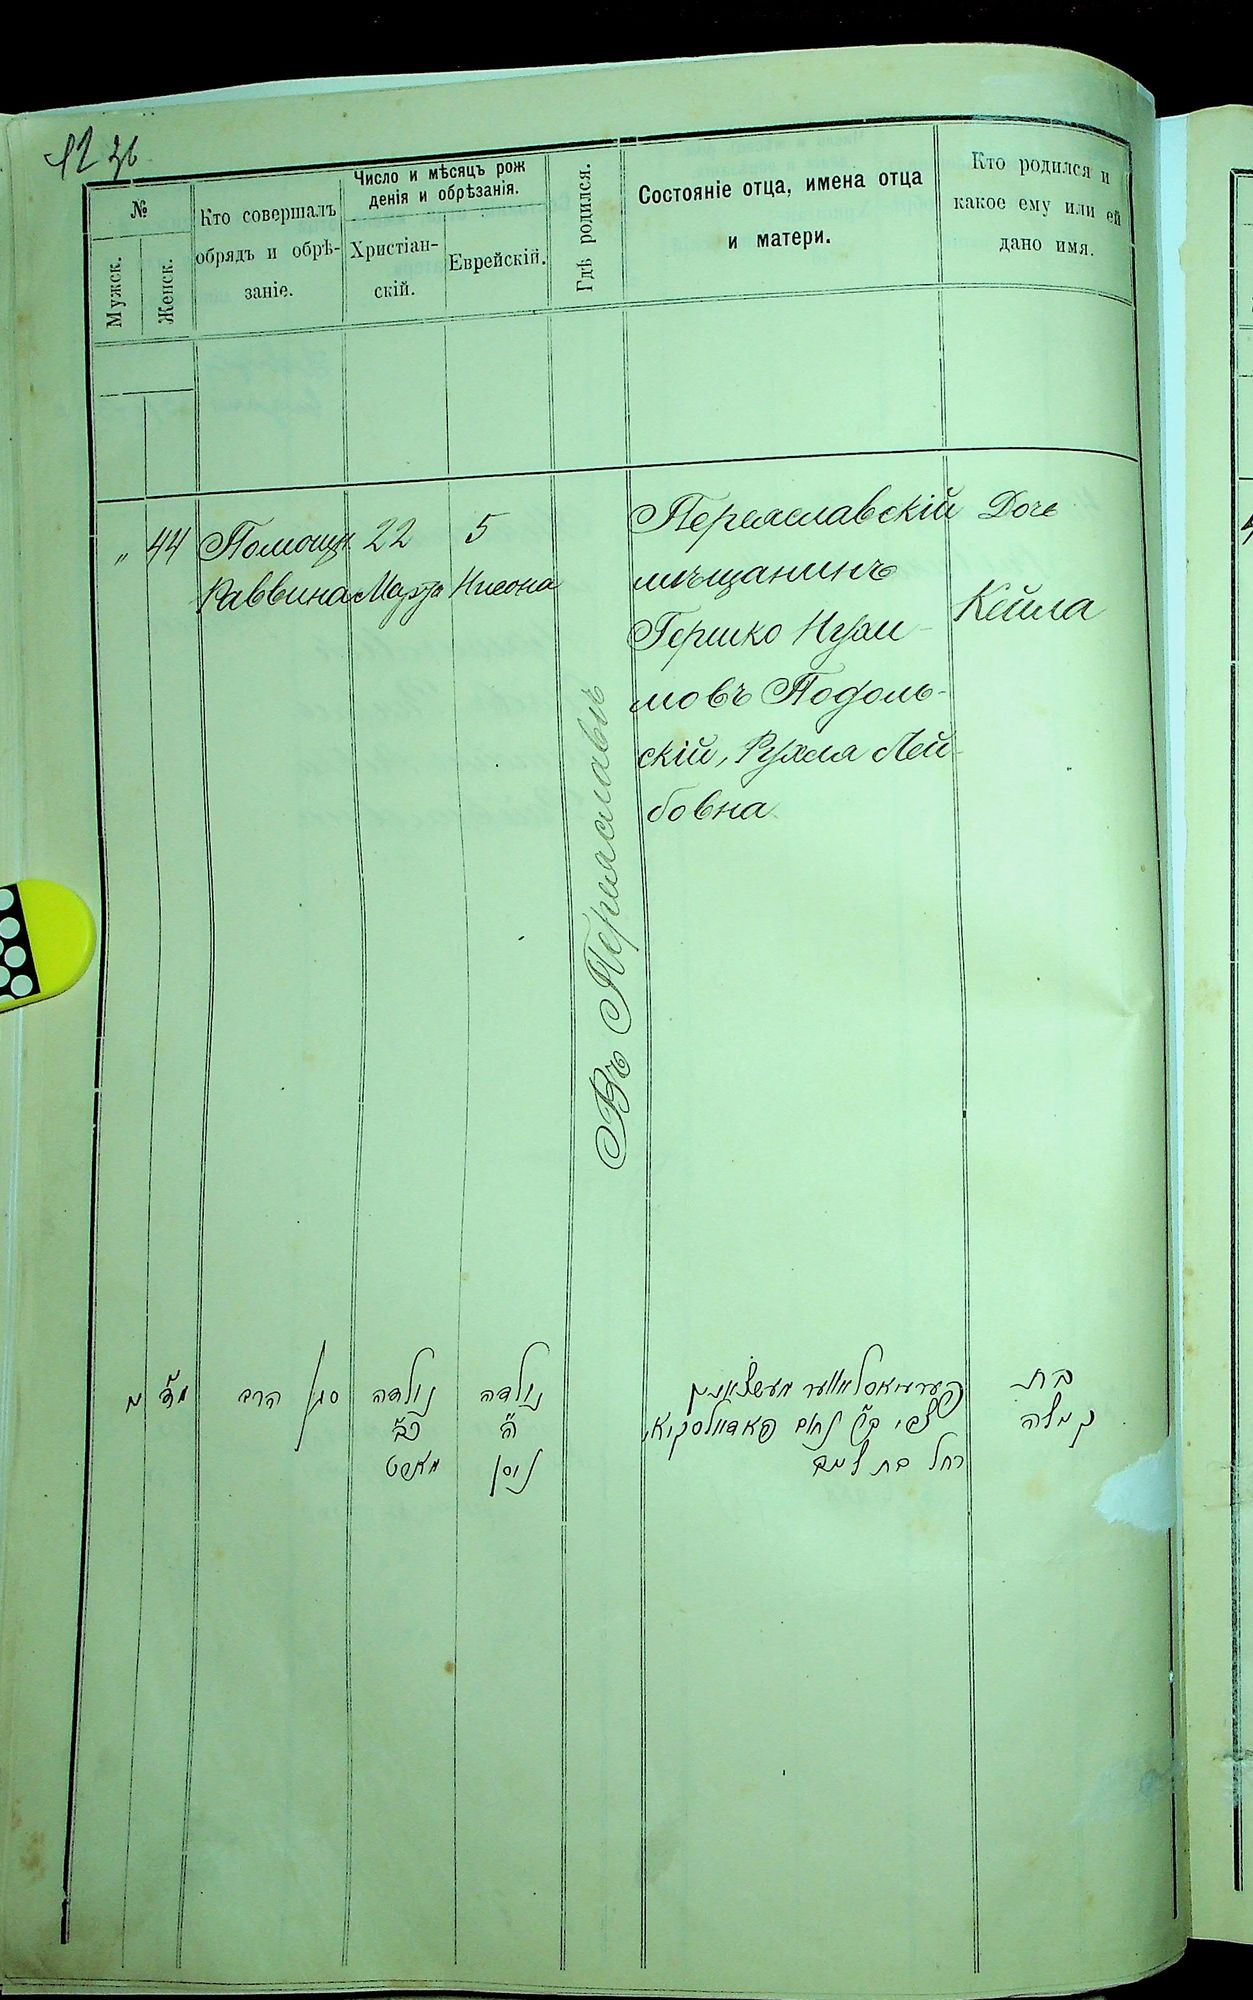 №
Мужск.
Женск.
Кто совершалъ
обрядъ и обрѣ-
заніе.
Число и мѣсяцъ рож
денія и обрѣзанія.
Христіан-
скій.
Еврейскій.
Гдѣ родился.
Состояніе отца, имена отца
и матери.
Кто родился и
какое ему или ей
дано имя.
„ 44
Помощн
Раввина
22
Марта
5
Нисона
Въ Переяславѣ
Переяславскій
мѣщанинъ
Гершко Нухи-
мовъ Подоль-
скій, Рухля Лей-
бовна
Доч
Кейла
מ״ד
סגן הרב
נולדה
כ״ב
מארט
נולדה
ה׳
ניסן
פערעיאסלאווער
נחום פאדאלסקיא,
רחל בת
בת
קיילה